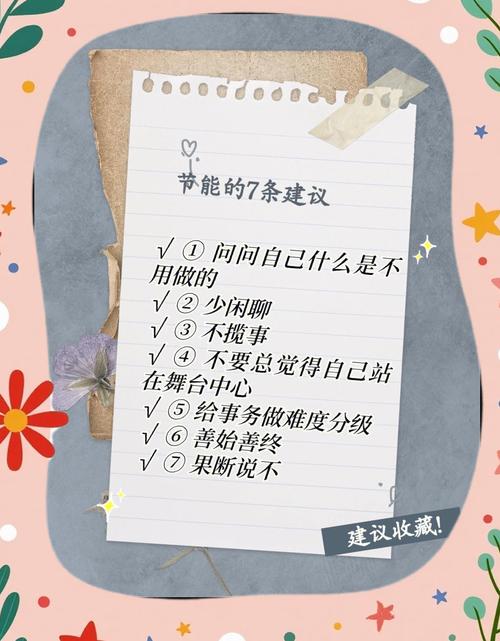 节能的7条建议
√ ① 问问自己什么是不
用做的
√ ② 少闲聊
√ ③ 不揽事
√ ④ 不要总觉得自己站
在舞台中心
√ ⑤ 给事务做难度分级
√ ⑥ 善始善终
√ ⑦ 果断说不
建议收藏!